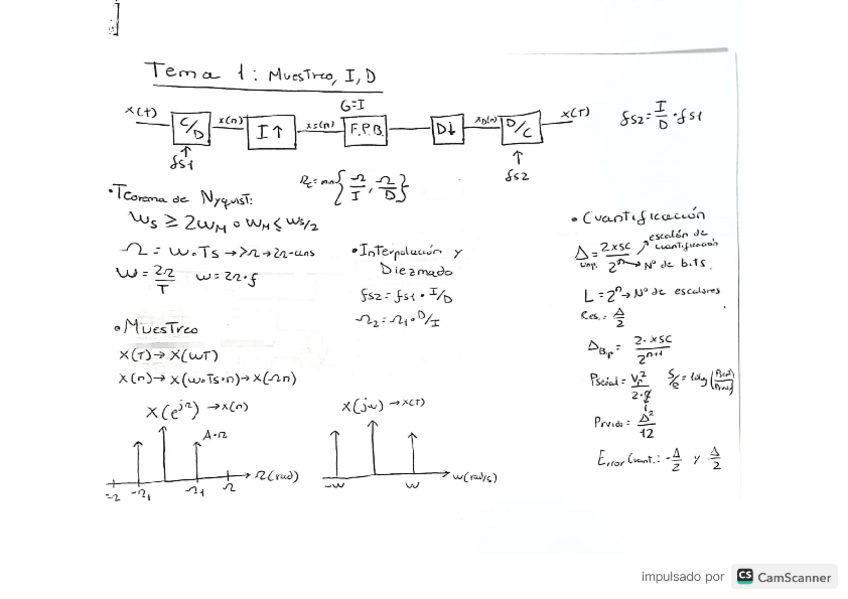 Tema 1: Muestreo, I, D
x(t) C/D x(n) I↑ G=I F.P.B. D↓ x_D(n) D/C x(t)
fs1
fs2
fs2 = I/D · fs1
Ωc = min{Ω/I, Ω/D}
• Teorema de Nyquist:
Ws ≥ 2WM o WM ≤ Ws/2
W = 2π/T W = 2π·f
• Interpolación y
Diezmado
fs2 = fs1 · I/D
Ω2 = Ω1 · D/I
• Muestreo
X(T) → X(WT)
X(n) → X(W·Ts·n) → X(Ωn)
X(e^jΩ) → x(n)
A·π
-Ω1 Ω1 Ω(rad)
X(jw) → x(t)
-W W w(rad/s)
• Cuantificación
Δ = 2·xsc / 2^n
escalón de
cuantificación
Nº de bits.
L = 2^n → Nº de escalores
Res. = Δ/2
Δ_Bp = 2·xsc / 2^(n+1)
Pseñal = Vp²/2
Pruido = Δ²/12
Error Cuant.: -Δ/2 y Δ/2
impulsado por CS CamScanner